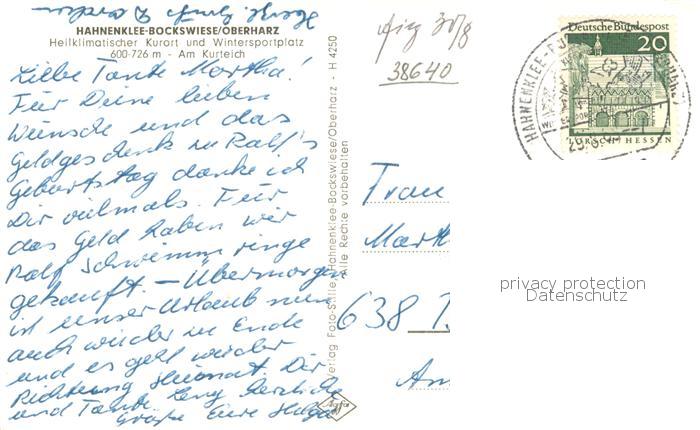 HAHNENKLEE-BOCKSWIESE/OBERHARZ
Heilklimatischer Kurort und Wintersportplatz
600-726 m - Am Kurteich
Liebe Tante Martha!
Für Deine lieben
Wünsche und das
Geldgeschenk zu Ralf's
Geburtstag danke ich
Dir vielmals. Für
das Geld haben wir
Ralf Schwimmringe
gekauft. - Übermorgen
ist unser Urlaub nun
auch wieder zu Ende
und es geht wieder
Richtung Heimat. Dir
und Tante herzliche
Grüße Eure Helga
Verlag Foto-Stille, Hahnenklee-Bockswiese/Oberharz - H 4250
Alle Rechte vorbehalten
Agfa
30/8
38640
Deutsche Bundespost
20
LORSCH HESSEN
HAHNENKLEE-BOCKSWIESE
Frau
Marth
638
An
privacy protection
Datenschutz